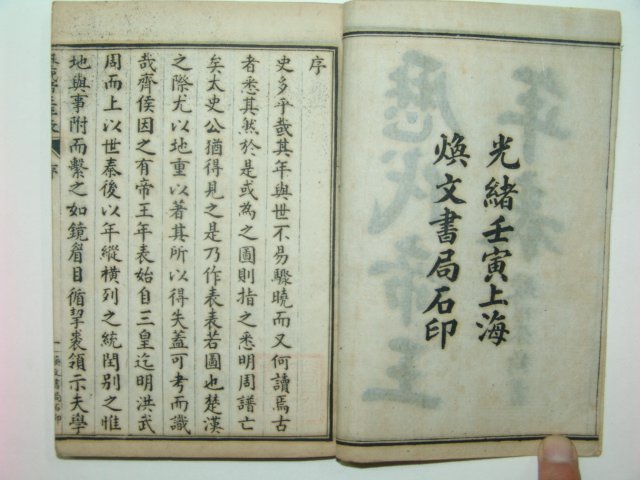 光緒壬寅上海
煥文書局石印
序
史多乎哉其年與世不易驟曉而又何讀焉古
者悉其然於是或為之圖則指之悉明周譜亡
矣太史公猶得見之是乃作表表若圖也楚漢
之際尤以地重以著其所以得失蓋可考而識
哉齊侯因之有帝王年表始自三皇迄明洪武
周而上以世秦後以年縱橫列之統閏別之惟
地與事附而繫之如鏡眉目循挈裘領示夫學
序
一
煥文書局石印